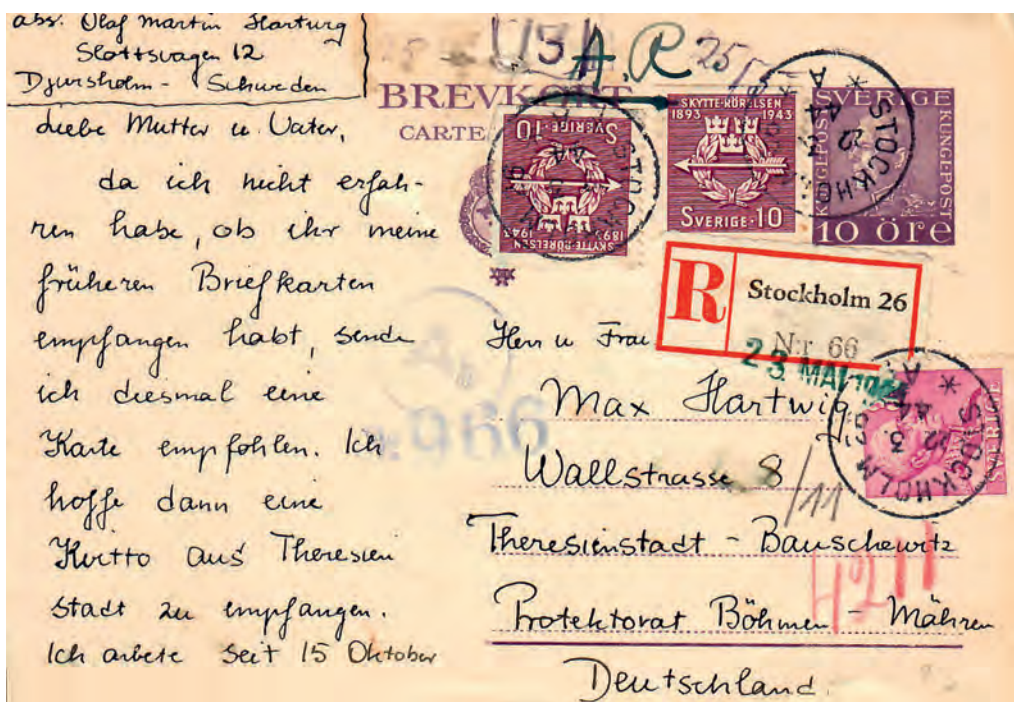 abs. Olaf Martin Hartwig
Slottsvagen 12
Djursholm - Schweden
Liebe Mutter u. Vater,
da ich nicht erfah-
ren habe, ob ihr meine
früheren Briefkarten
empfangen habt, sende
ich diesmal eine
Karte empfohlen. Ich
hoffe dann eine
Kvitto aus Theresien
stadt zu empfangen.
Ich arbete seit 15 Oktober
A.R
25
BREVKORT
CARTE
SKYTTE-RÖRELSEN
1893 1943
SVERIGE·10
SKYTTE-RÖRELSEN
1893 1943
SVERIGE·10
SVERIGE
KUNGPOST
10 öre
STOCKHOLM
STOCKHOLM
R
Stockholm 26
N:r 66
23. MAI 19
966
Herrn u Frau
Max Hartwig
Wallstrasse 8/11
Theresienstadt - Bauschowitz
Protektorat Böhmen - Mähren
Deutschland.
SVERIGE
STOCKHOLM